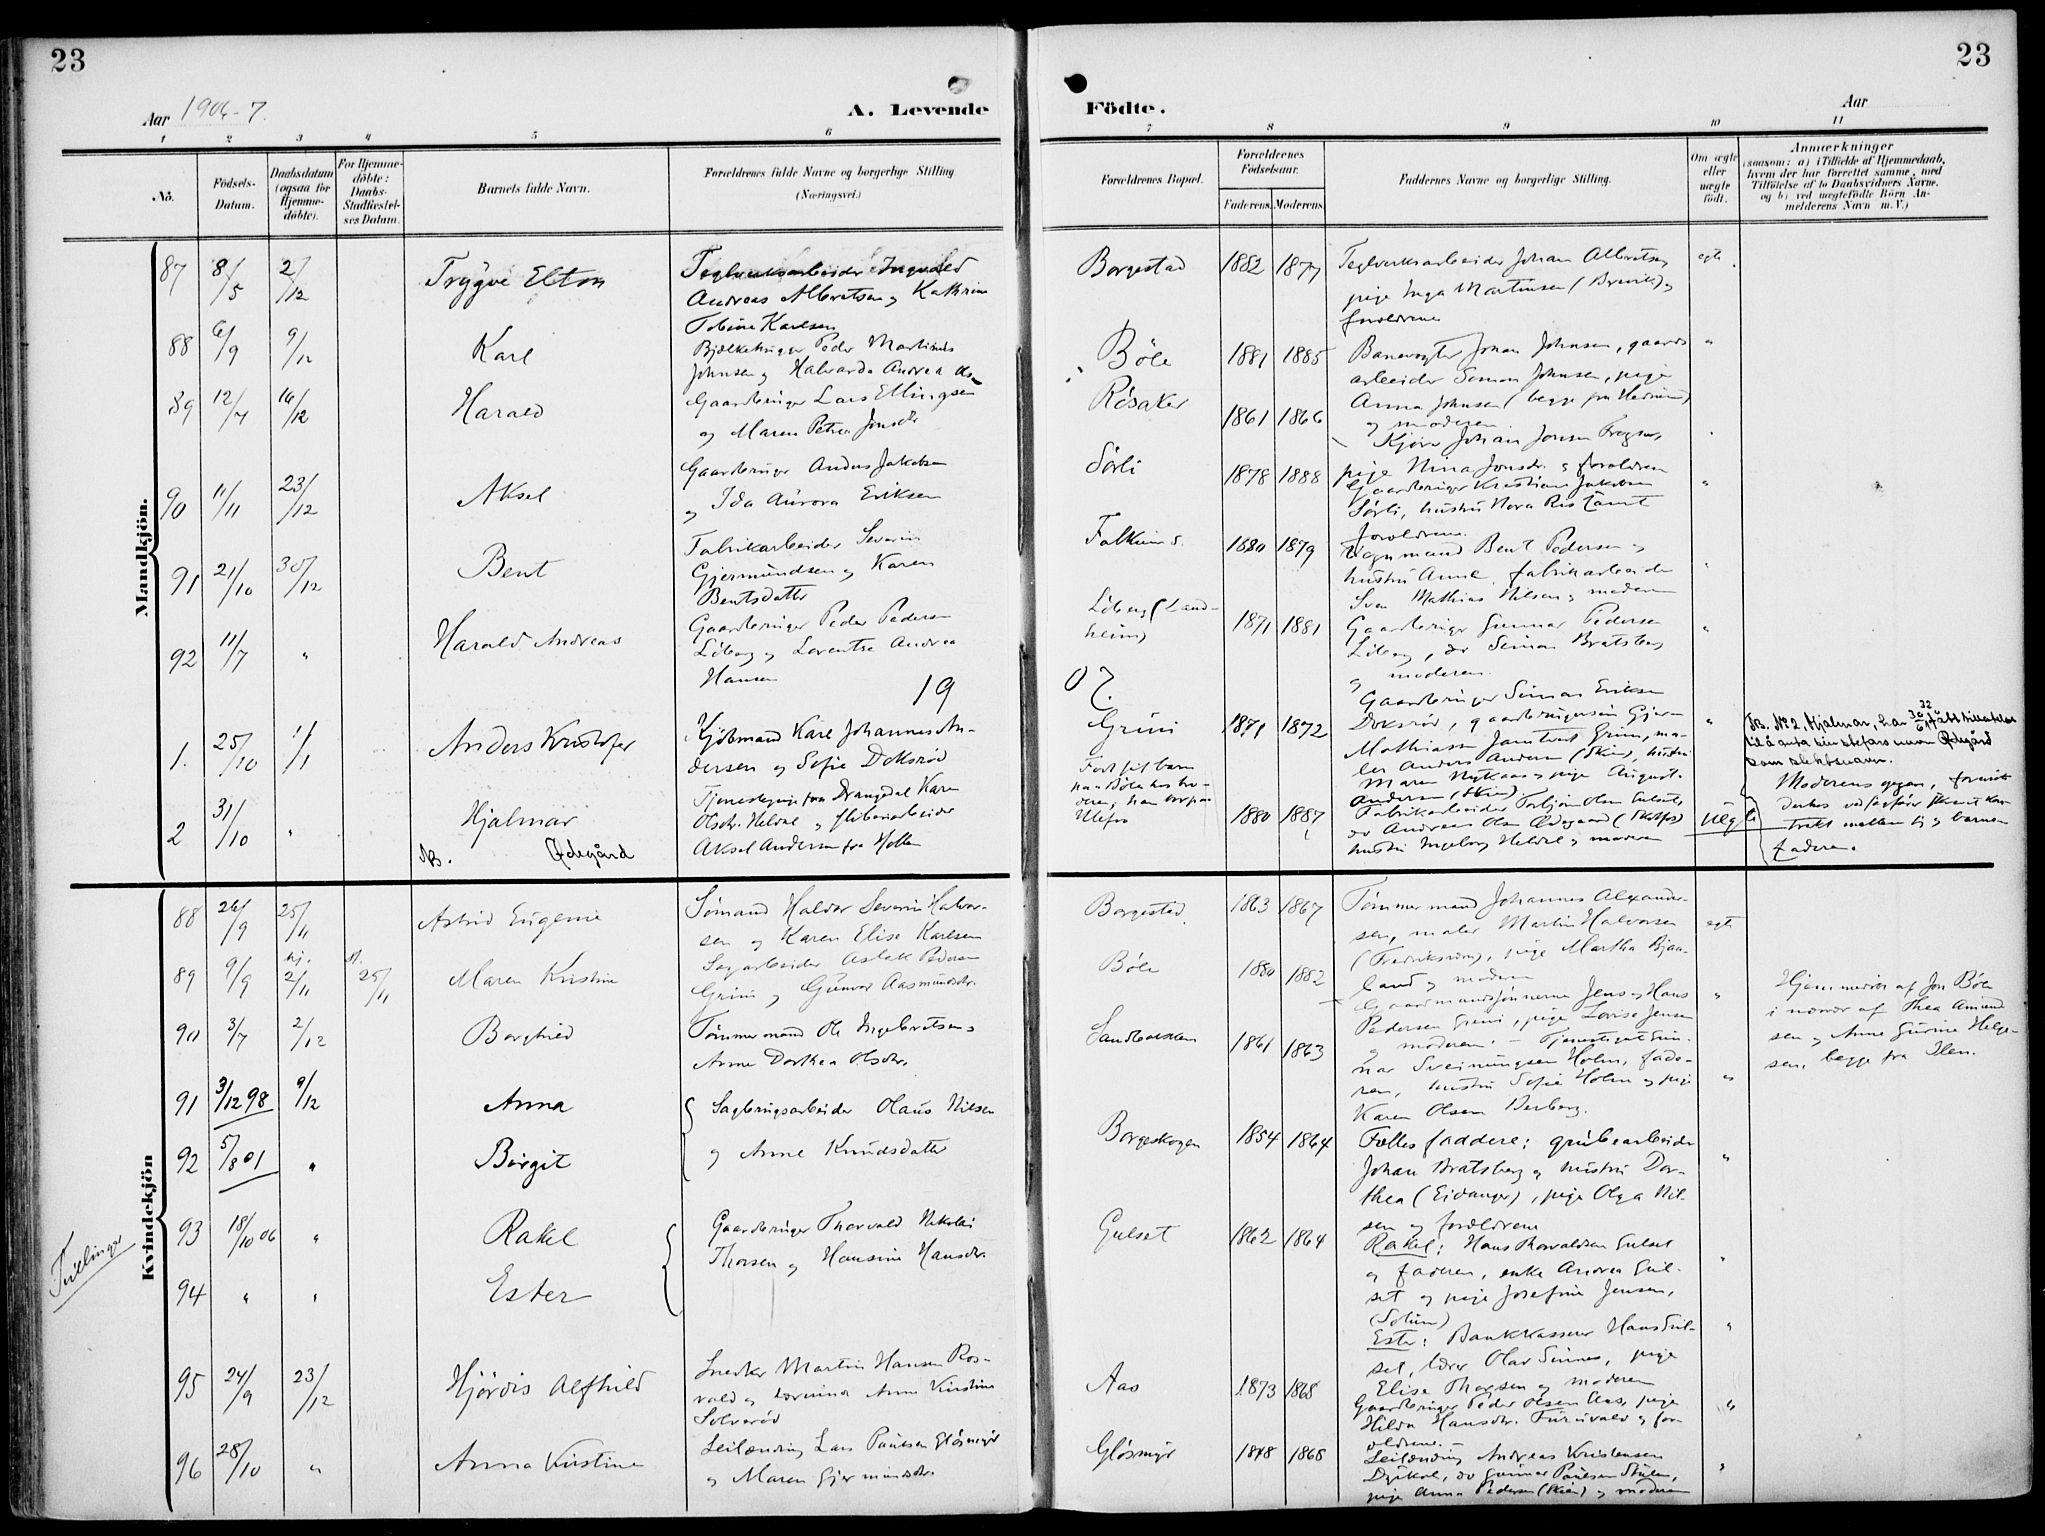 23
23
Aar 1906-7.
A. Levende
Födte.
Aar
1 2 3 4 5 6 7 8 9 10 11
No.
Födsels-Datum.
Daabsdatum (ogsaa for Hjemme-döbte).
For Hjemme-döbte: Daabs-Stadfæstel-ses Datum.
Barnets fulde Navn.
Forældrenes fulde Navne og borgerlige Stilling (Næringsvei.)
Forældrenes Bopæl.
Forældrenes Födselsaar.
Faderens. Moderens.
Faddernes Navne og borgerlige Stilling.
Om ægte eller uægte födt.
Anmærkninger
(saasom: a) i Tilfælde af Hjemmedaab, hvem der har forrettet samme, med Tilföielse af to Daabsvidners Navne. og b) ved uægtefödte Börn An-melderens Navn m.V.)
Mandkjön.
87 8/5 2/12 Trygve Elton
Teglverksarbeider Ingvald
Andreas Albretsen og Kathrine
Tobine Karlsen
Borgestad 1882 1877
Teglverksarbeider Johan Albretsen
pige Inga Martinsen (Brevik) og
forældrene
egte
88 6/9 9/12 Karl
Bjelkehugger Peder Martinius
Johnsen og Halvarda Andrea
Böle 1881 1885
Banevogter Johan Johnsen, gaards
arbeider Simon Johnsen, pige
Anna Johnsen (begge fra
og moderen.
"
89 12/7 16/12 Harald
Gaardbruger Lars Ellingsen
og Maren Petrea Jonsdtr
Rösaker 1861 1866
Johan Jonsen
pige Nina Jonsdr. og forældrene
90 11/11 23/12 Aksel
Gaardbruger Anders Jakobsen
og Ida Aurora Eriksen
Sörli 1878 1888
Gaardbruger Kristian Jakobsen
Sörli, hustru Nora
forældrene.
"
91 21/10 30/12 Bent
Fabrikarbeider Severin
Gjermundsen og Karen
Bentsdatter
Falkum s. 1880 1879
Vognmand Bent Pedersen og
hustru Anne, fabrikarbeider
Sven Mathias Nilsen og moderen
92 11/7 " Harald Andreas
Gaardbruger Peder Pedersen
Liberg og Laventse Andrea
Hansen
Liberg (Land-
heim) 1871 1881
Gaardbruger Gunnar Pedersen
Liberg, do Simon Bratsberg
og moderen.
"
19 07.
1. 25/10 1/1 Anders Kristofer
Kjöbmand Karl Johannes An-
dersen og Sofie Doksröd
Grini 1871 1872
Gaardbruger Simon Eriksen
Doksröd, gaardbrugersön Gjer-
Mathiassen Grini, ma-
ler Anders Andersen (Skien), hustru
Maren Nykaas og pige August.
Andersen (Skien).
"
2 31/10 " Hjalmar
NB. Ødegård
Tjenestepige fra Drangedal Karen
Olsdtr. Heldal og fløterarbeider
Aksel Andersen fra Hollen
Födt fst barn
paa Böle hos bro-
deren; han bor paa
Ulefos
1880 1887
Fabrikarbeider Torbjörn Olsen Gulset,
do Andreas Olsen Ødegaard (Skotfos)
hustru Ingeborg Heldal og moderen
Uegte
NB. No 2, Hjalmar, har 30/6 32 fått tillatelse
til å anta sin stefars navn Ødegård
som slektsnavn.
Moderens opgave,
mellem sig og barne-
faderen.
Kvindekjön
88 26/9 25/11 Astrid Eugenie
Sömand Haldor Severin Halvor-
sen og Karen Elise Karlsen
Borgestad. 1863 1867
Tömmermand Johannes Alexander-
sen, maler Martin Halvorsen
(Fredriksværn), pige Martha Bjaa-
land og moderen
egte
89 9/9 hj. 2/11 st. 25/11 Maren Kristine
Sagarbeider Aslak Pedersen
Grini og Gunvor Aasmundsdr.
Böle 1880 1882
Gaardmandssönnerne Jens og Hans
Pedersen Grini, pige Lovise Jensen
og moderen. –
"
Hjemmedöbt af Jon Böle
i nærvær af Thea Amund
sen og Anne Gurine Helge-
sen, begge fra Ilen.
90 3/7 2/12 Borghild
Tömmermand Ole Ingebretsen og
Anne Dorthea Olsdtr.
Sandbakken 1861 1863
Tjenestegut Gun-
nar Sveinungsen Holm, fade-
ren, hustru Sofie Holm og pige
Karen Olsen Versberg.
"
91 3/12 98 9/12 Anna
Sagbrugsarbeider Olaus Nilsen
og Anne Knudsdatter
Borgeskogen 1854 1864
Fælles faddere: grubearbeider
Johan Bratsberg og hustru Dor-
thea (Eidanger), pige Olga Nil-
sen og forældrene
"
92 5/8 01 " Birgit
Tvillinger
93 18/10 06 " Rakel
Gaardbruger Thorvald Nikolai
Thorsen og Hansine Hansdtr.
Gulset 1862 1864
Rakel: Hans Thorvaldsen Gulset
og faderen, enke Andrea Gul-
set og pige Josefine Jensen,
(Solum)
"
94 " " Ester
Ester: Bankkasserer Hans Gul-
set, lærer Olav Sinnes, pige
Elise Thorsen og moderen
"
95 24/9 23/12 Hjördis Alfhild
Snedker Martin Hansen Ros-
vald og lærerinde Anne Kirstine
Solveröd
Aas 1873 1868
Gaardbruger Peder Olsen Aas, pige
Hilda Hansdtr. Furuvald og for-
ældrene. –
"
96 28/10 " Anna Kirstine
Leilænding Lars Paulsen Glösmyr
og Maren Gjermundsdr.
Glösmyr 1868
Leilænding Andreas Kristensen
do Gunnar Paulsen
pige Anna Pedersen (Skien) og moderen
"